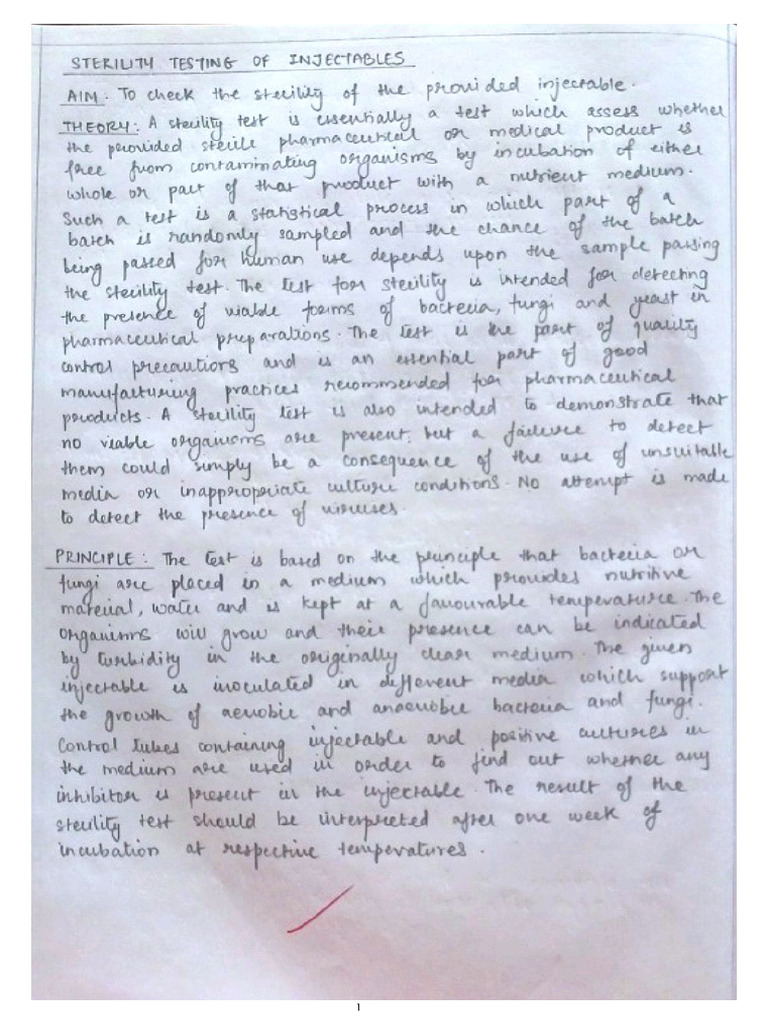 STERILITY TESTING OF INJECTABLES
AIM: To check the sterility of the provided injectable.
THEORY: A sterility test is essentially a test which assess whether
the provided sterile pharmaceutical or medical product is
free from contaminating organisms by incubation of either
whole or part of that product with a nutrient medium.
Such a test is a statistical process in which part of a
batch is randomly sampled and the chance of the batch
being passed for human use depends upon the sample passing
the sterility test. The test for sterility is intended for detecting
the presence of viable forms of bacteria, fungi and yeast in
pharmaceutical preparations. The test is the part of quality
control precautions and is an essential part of good
manufacturing practices recommended for pharmaceutical
products. A sterility test is also intended to demonstrate that
no viable organisms are present, but a failure to detect
them could simply be a consequence of the use of unsuitable
media or inappropriate culture conditions. No attempt is made
to detect the presence of viruses.
PRINCIPLE: The test is based on the principle that bacteria or
fungi are placed in a medium which provides nutritive
material, water and is kept at a favourable temperature. The
organisms will grow and their presence can be indicated
by turbidity in the originally clear medium. The given
injectable is inoculated in different media which support
the growth of aerobic and anaerobic bacteria and fungi.
Control tubes containing injectable and positive cultures in
the medium are used in order to find out whether any
inhibitor is present in the injectable. The result of the
sterility test should be interpreted after one week of
incubation at respective temperatures.
1